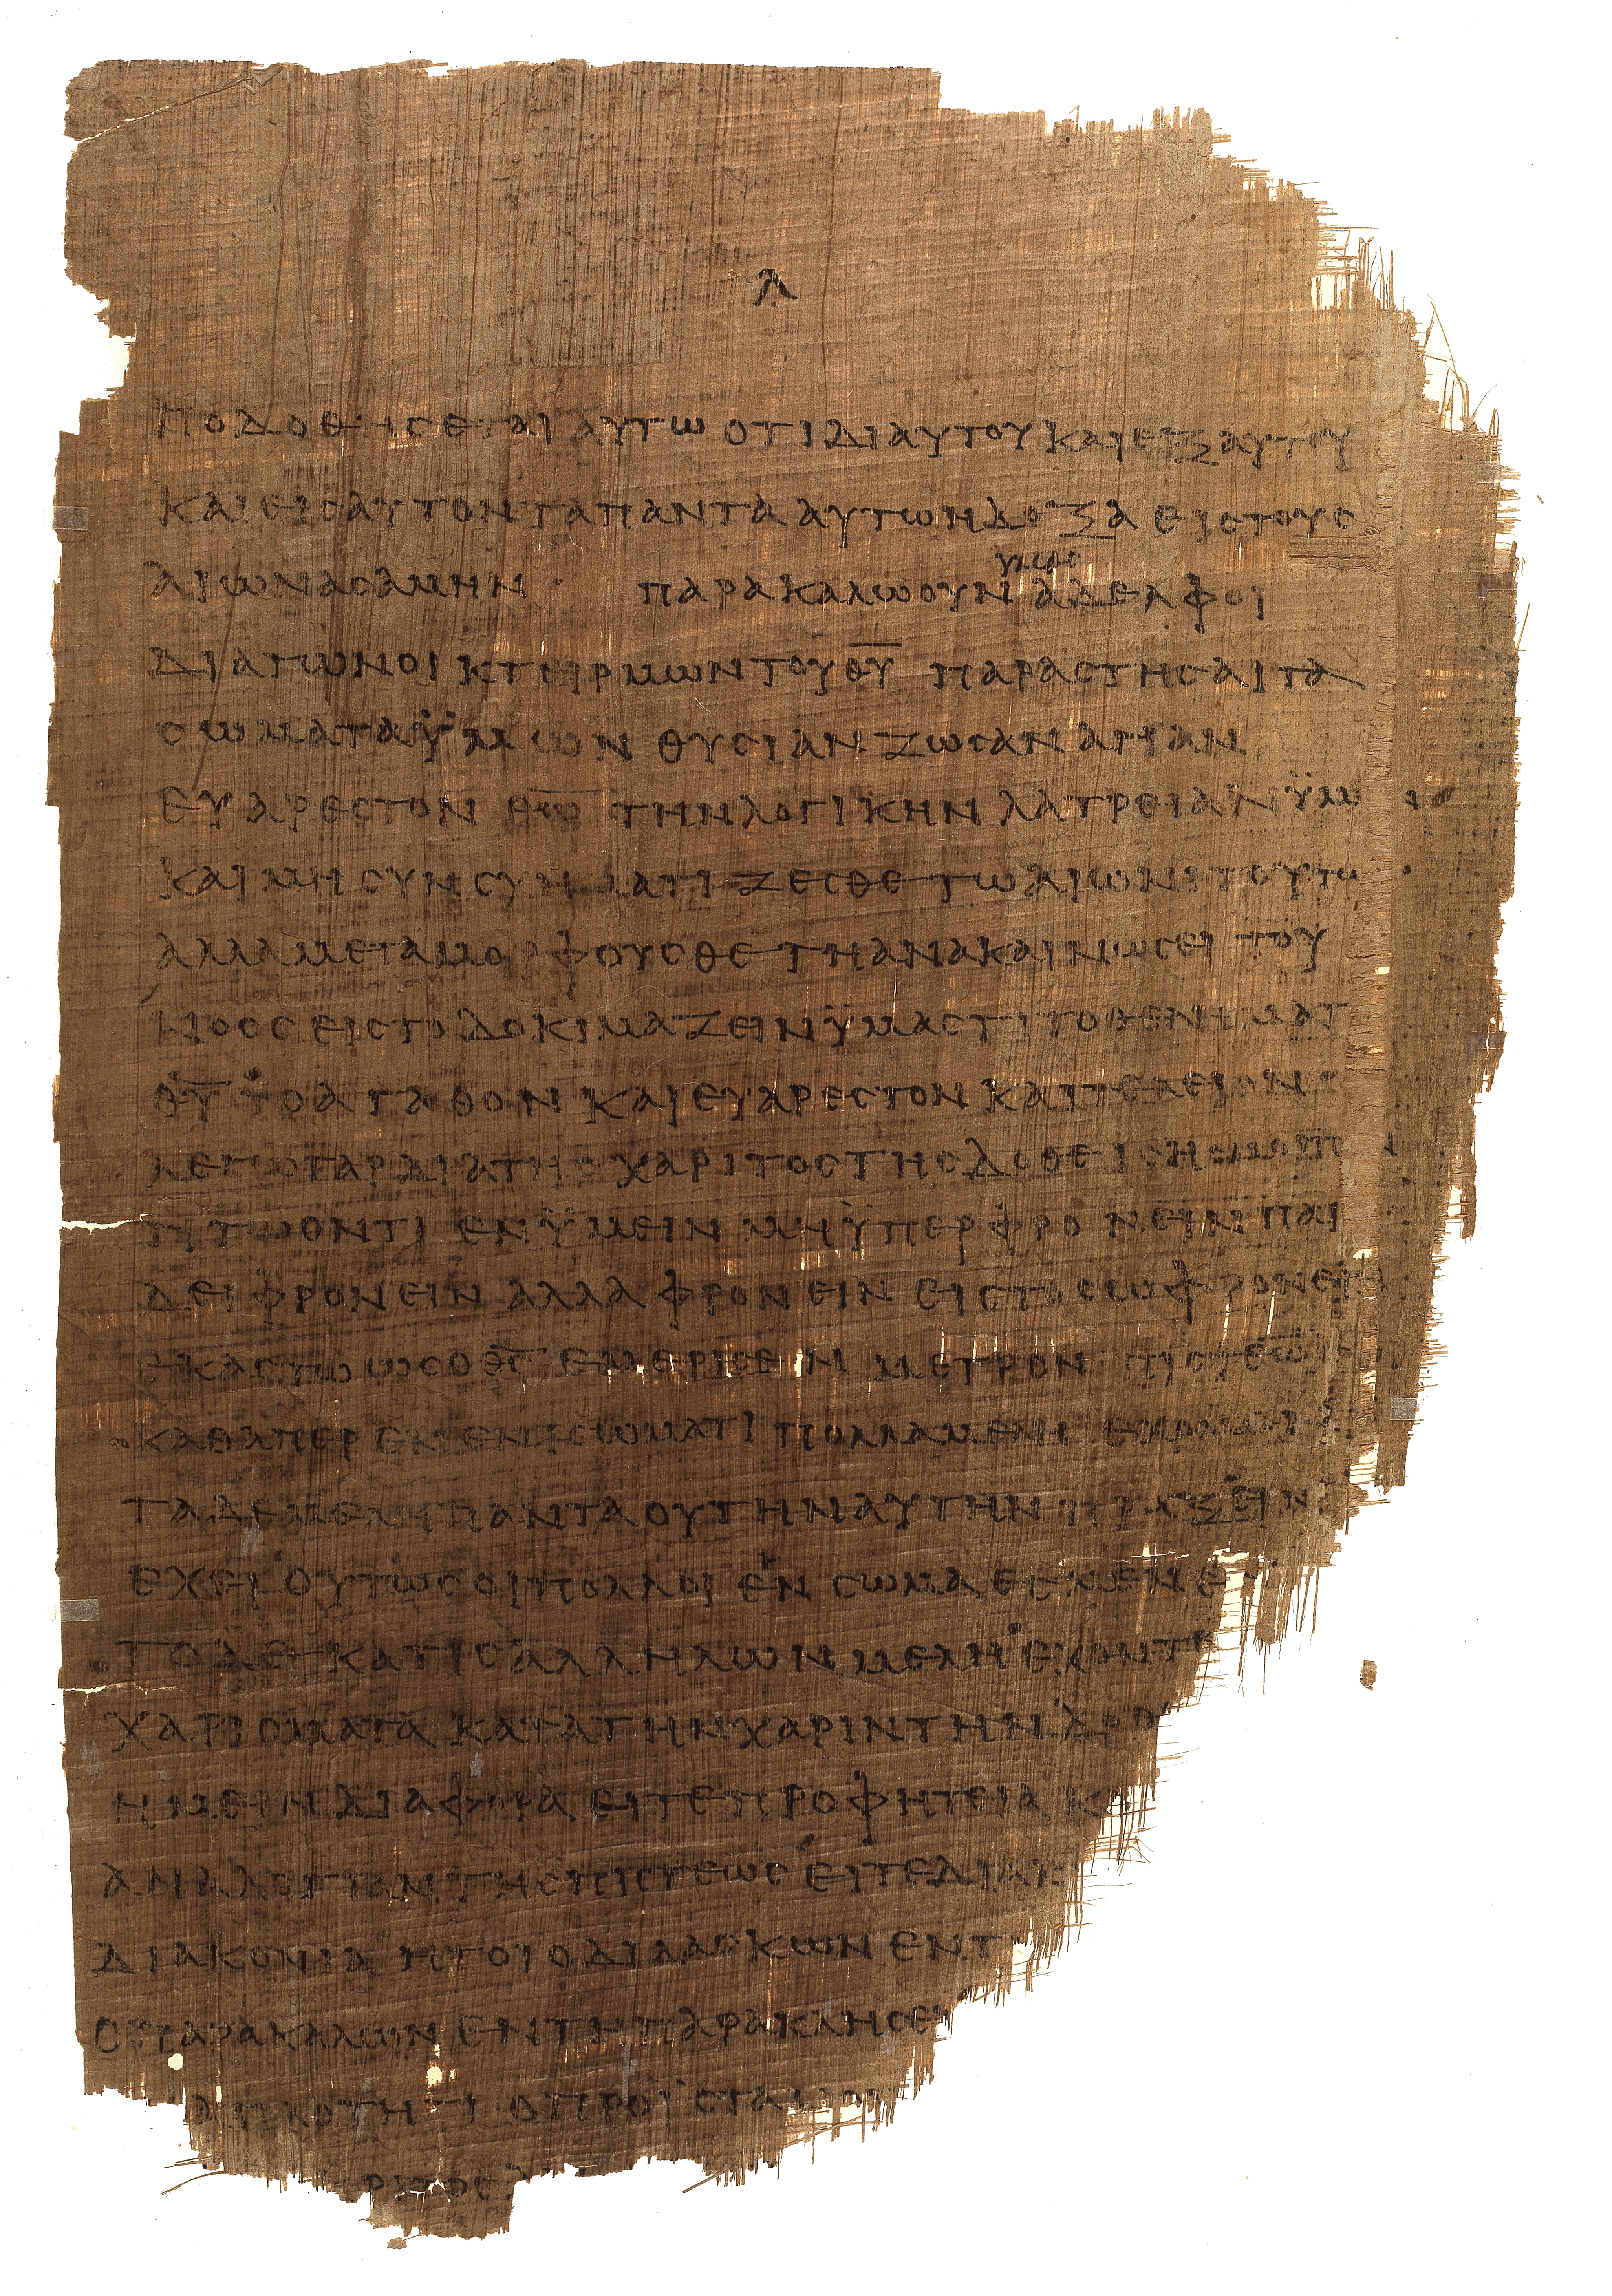 λ
ποδοθησεται αυτω οτι δι αυτου και εξ αυτου
και εις αυτον τα παντα αυτω η δοξα εις τους
αιωνας αμην · παρακαλω ουν υμας αδελφοι
δια των οικτειρμων του θ̅υ̅ παραστησαι τα
σωματα ϋμων θυσιαν ζωσαν αγιαν
ευαρεστον θ̅ω̅ την λογικην λατρειαν ϋμω
και μη συνσχηματιζεσθε τω αιωνι τουτω
αλλα μεταμορφουσθε τη ανακαινωσει του
νοος εις το δοκιμαζειν ϋμας τι το θελημα τ
θ̅υ̅ το αγαθον και ευαρεστον και τελειον
λεγω γαρ δια της χαριτος της δοθεισης μοι παν
τι τω οντι εν ϋμειν μη ϋπερφρονειν παρ
δει φρονειν αλλα φρονειν εις το σωφρονειν
εκαστω ως ο θ̅ς̅ εμερισεν μετρον πιστεως
καθαπερ εν ενι σωματι πολλα μελη εχομεν
τα δε μελη παντα ου την αυτην πραξιν
εχει ουτως οι πολλοι εν σωμα εσμεν ε
το δε κατ ις αλληλων μελη εχοντ
χαρισματα κατα την χαριν την δο
ημειν διαφορα ειτε προφητεια κ
αναλογιαν της πιστεως ειτε διακ
διακονια ητοι ο διδασκων εν τ
ο παρακαλων εν τη παρακλησε
απλοτητι ο προϊσταμεν